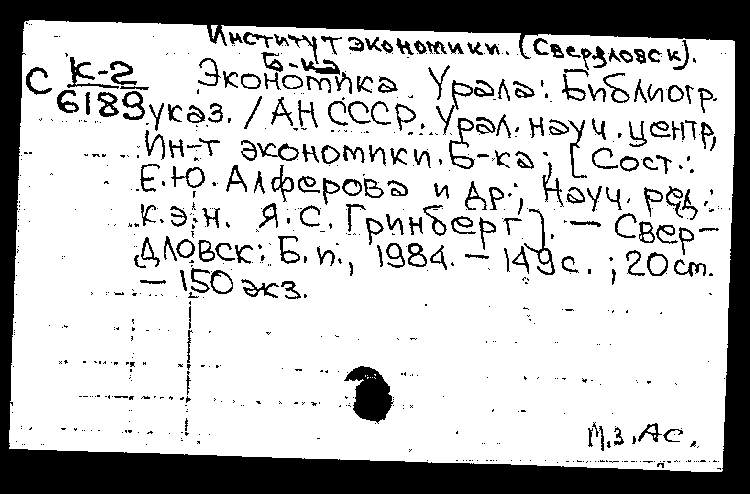 Институт экономики. (Свердловск).
Б-ка.
С К-2
6189
Экономика Урала: Библиогр.
указ. / АН СССР. Урал. науч. центр,
Ин-т экономики. Б-ка; [Сост.:
Е.Ю. Алферова и др.; Науч. ред.:
к.э.н. Я.С. Гринберг]. — Свер-
дловск: Б.и., 1984. — 149 с. ; 20 см.
— 150 экз.
М.З. Ас.